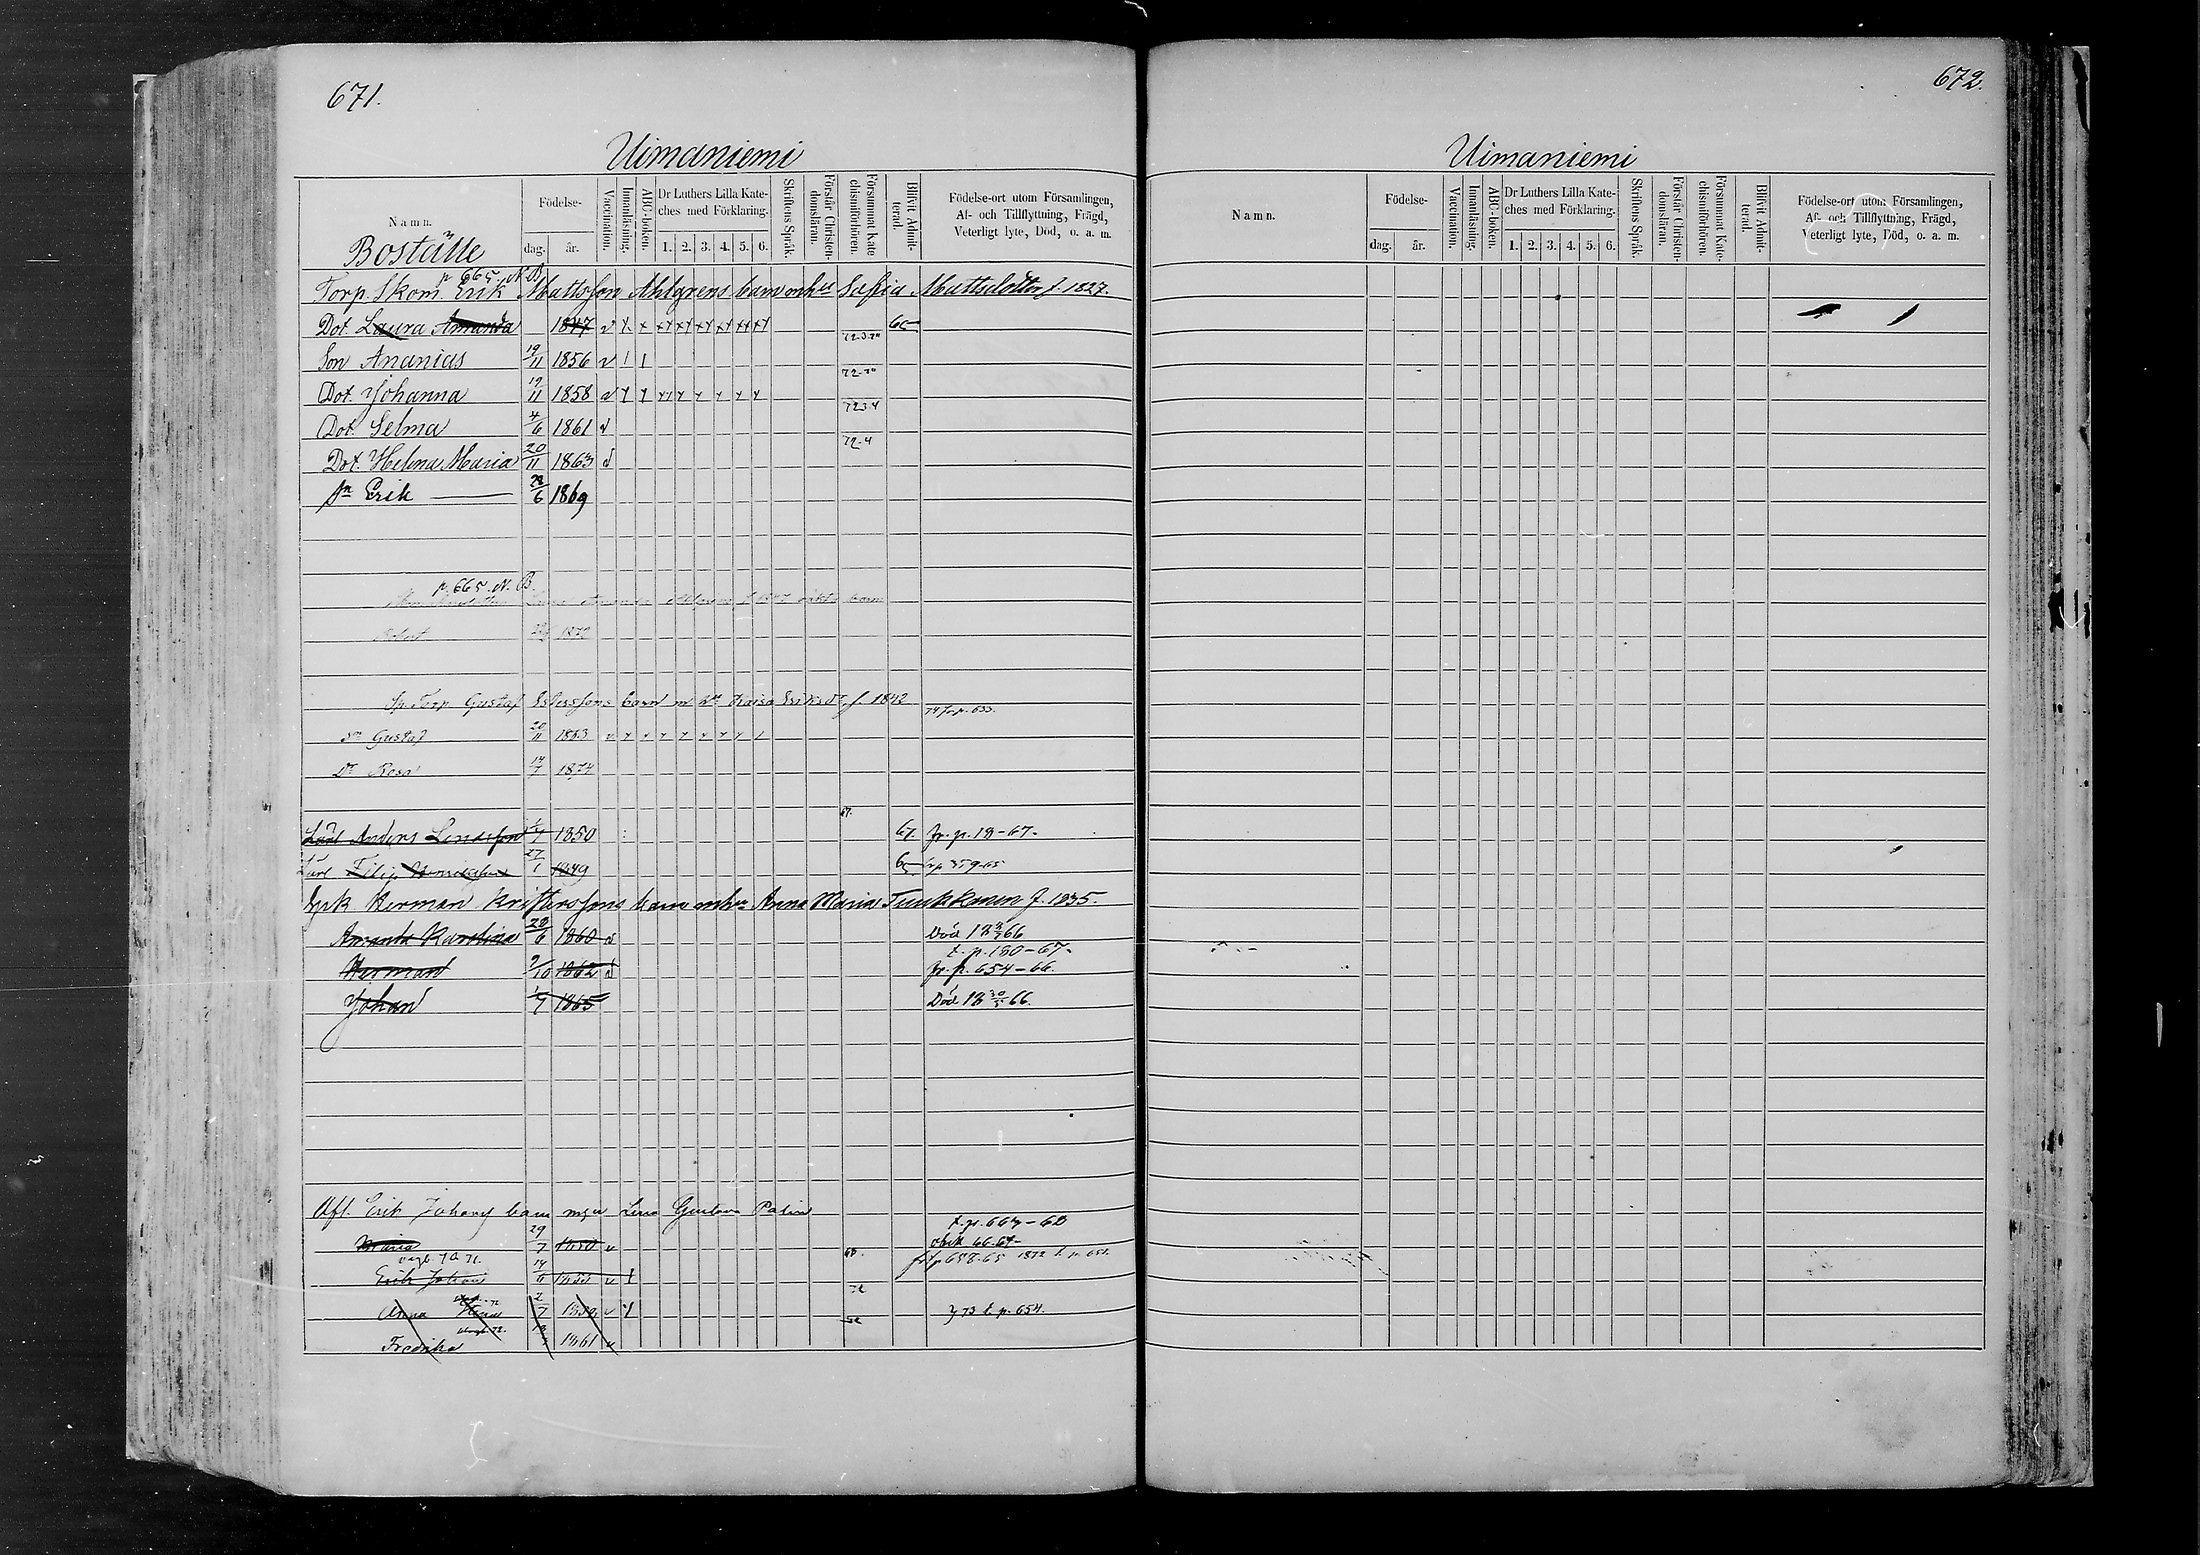 671.
Uimaniemi
Namn.
Födelse-
dag.
år.
Vaccination.
Innanläsning.
ABC-boken.
Dr Luthers Lilla Kate-
ches med Förklaring.
1. 2. 3. 4. 5. 6.
Skriftens Språk.
Förstår Christen-
domsläran.
Försummat Kate-
chismiförhören.
Blifvit Admit-
terad.
Födelse-ort utom Församlingen,
Af- och Tillflyttning, Frägd,
Veterligt lyte, Död, o. a. m.
Boställe
p 665. N.B
Torp. Skom. Erik Mattsson Ahlgrens barn mhu Sofia Mattsdotter f. 1827.
Dot. Laura Amanda 1847 v x x xx xx xx xx xx xx 65
72.3.74
Son Ananias 19/11 1856 v 1 1
72-74
Dot. Johanna 19/11 1858 v
72 3 4
Dot. Selma 4/6 1861 v
72-4
Dot. Helena Maria 20/11 1863 v
Sn Erik 28/6 1869
p. 665. N. B.
Laura Amanda Ahlgrens f. 1847 oäkta barn
1872
Sp. Torp Gustaf barn m hu Kaisa Eriksdr f. 1842
74 fr. p. 653.
Sn Gustaf 20/11 1863
Dr Rosa 14/7 1874
67.
Anders 1850 67. Fr. p. 18-67.
27/1 1849 65 fr p 359-65
Herman Kristerssons barn mhu Anna Maria Tuukkanen f. 1835.
Amanda Karolina 28/6 1860 v Död 18 66
t. p. 180-67-
Herman 9/10 1862 v Fr. p. 654-66.
Johan 1/7 1865 Död 18 30/5 66.
Afl. Erik Johans barn
t. p. 667-68
Maria 29/7 1850 v obek 66.67-
68. 658-65 1872 t. p. 658.
Erik Johan 1855 v 1
72
Anna 2/7 v 73 t. p. 654.
Fredrika 1861 v
672.
Uimaniemi
Namn.
Födelse-
dag.
år.
Vaccination.
Innanläsning.
ABC-boken.
Dr Luthers Lilla Kate-
ches med Förklaring.
1. 2. 3. 4. 5. 6.
Skriftens Språk.
Förstår Christen-
domsläran.
Försummat Kate-
chismiförhören.
Blifvit Admit-
terad.
Födelse-ort utom Församlingen,
Af- och Tillflyttning, Frägd,
Veterligt lyte, Död, o. a. m.